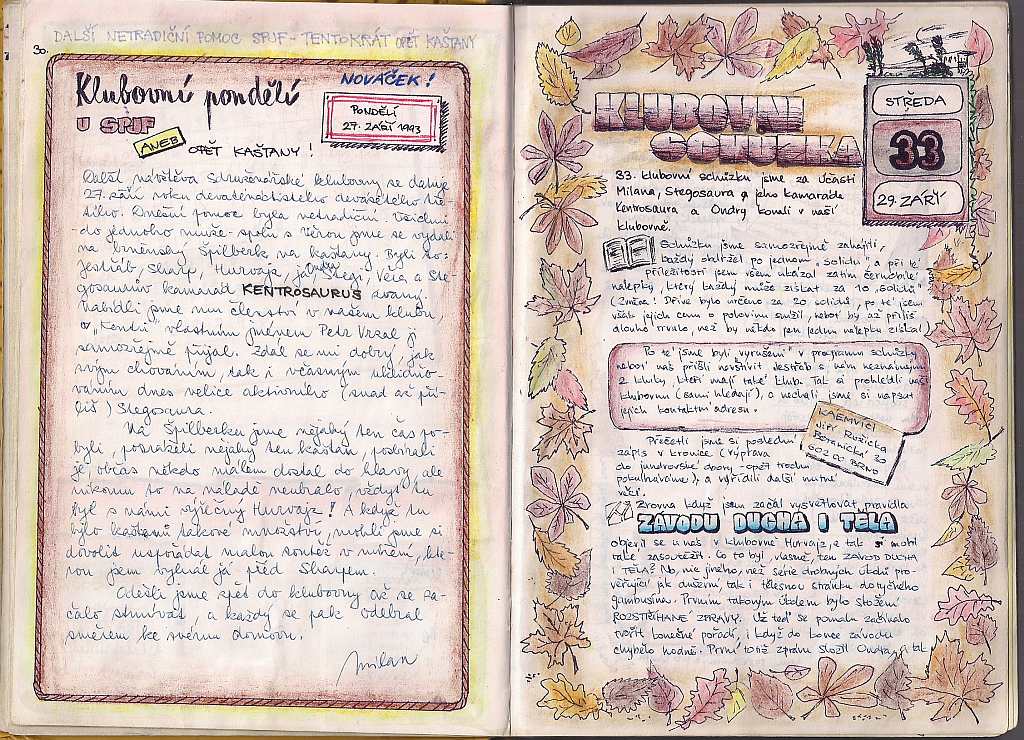 30.
DALŠÍ NETRADIČNÍ POMOC SPJF - TENTOKRÁT OPĚT KAŠTANY
Klubovní pondělí
NOVÁČEK!
U SPJF
PONDĚLÍ
27. ZÁŘÍ 1993
ANEB
OPĚT KAŠTANY!
Další návštěva klubovny se datuje
27. září roku devatenáctistého devadesátého tře-
tího. Dnešní pomoc byla netradiční. Všichni
do jednoho jsme se vydali
na brněnský Špilberk na kaštany. Byli to:
Jestřáb, Sharp, Hurvajz, já, Ondra, Stegi, Věra a Ste-
gosaurův kamarád KENTROSAURUS zvaný.
Nabídli jsme mu členství v našem klubu,
a „Kentri" vlastním jménem Petr Vrzal ji
samozřejmě přijal. Zdál se mi dobrý, jak
svým chováním, tak i včasným uklidňo-
váním dnes velice aktivního (snad až pří-
liš) Stegosaura.
Na Špilberku jsme nějaký ten čas po-
byli, posbírali
je, občas někdo málem dostal do hlavy, ale
nikomu to na náladě neubralo, vždyť tu
byl s námi Hurvajz! A když tu
bylo kaštanů takové množství, mohli jsme si
dovolit uspořádat malou soutěž v míření, kte-
rou jsem vyhrál já před Sharpem.
Odešli jsme zpět do klubovny až se za-
čalo stmívat, a každý se pak odebral
směrem ke svému domovu.
Milan
KLUBOVNÍ
SCHŮZKA
STŘEDA
33
29. ZÁŘÍ
33. klubovní schůzku jsme za účasti
Milana, Stegosaura a jeho kamaráda
Kentrosaura a Ondry konali v naší
klubovně.
Schůzku jsme samozřejmě zahájili,
každý obdržel po jednom „solidu" a při té
příležitosti jsem všem ukázal zatím černobílé
nálepky, který každý může získat za 10 „solidů"
(změna! Dříve bylo určeno za 20 solidů, po té jsem
však jejich cenu o polovinu snížil, neboť by až příliš
dlouho trvalo, než by někdo jen jednu nálepku získal)
Po té jsme byli vyrušeni v programu schůzky,
neboť nás přišli navštívit Jestřáb s nám neznámými
2 kluky, kteří mají také klub. Tak si prohlédli naši
klubovnu (sami hledají), a nechali jsme si napsat
jejich kontaktní adresu.
KAEMVÍČI
Jiří Růžička
Botanická 20
602 00 BRNO
Přečetli jsme si poslední
zápis v kronice (výprava
do jundrovské obory - opět trochu
pokulháváme), a vyřídili další nutné
věci.
Zrovna když jsem začal vysvětlovat pravidla
ZÁVODU DUCHA I TĚLA
objevil se u nás v klubovně Hurvajz, a tak si mohl
také zasoutěžit. Co to byl vlastně ten ZÁVOD DUCHA
I TĚLA? No, nic jiného, než série drobných úkolů pro-
věřující jak duševní, tak i tělesnou stránku dotyčného
gambusína. Prvním takovým úkolem bylo složení
ROZSTŘÍHANÉ ZPRÁVY. Už teď se pomalu začínalo
tvořit konečné pořadí, i když do konce závodu
chybělo hodně. První totiž zprávu složil Ondra, a tak